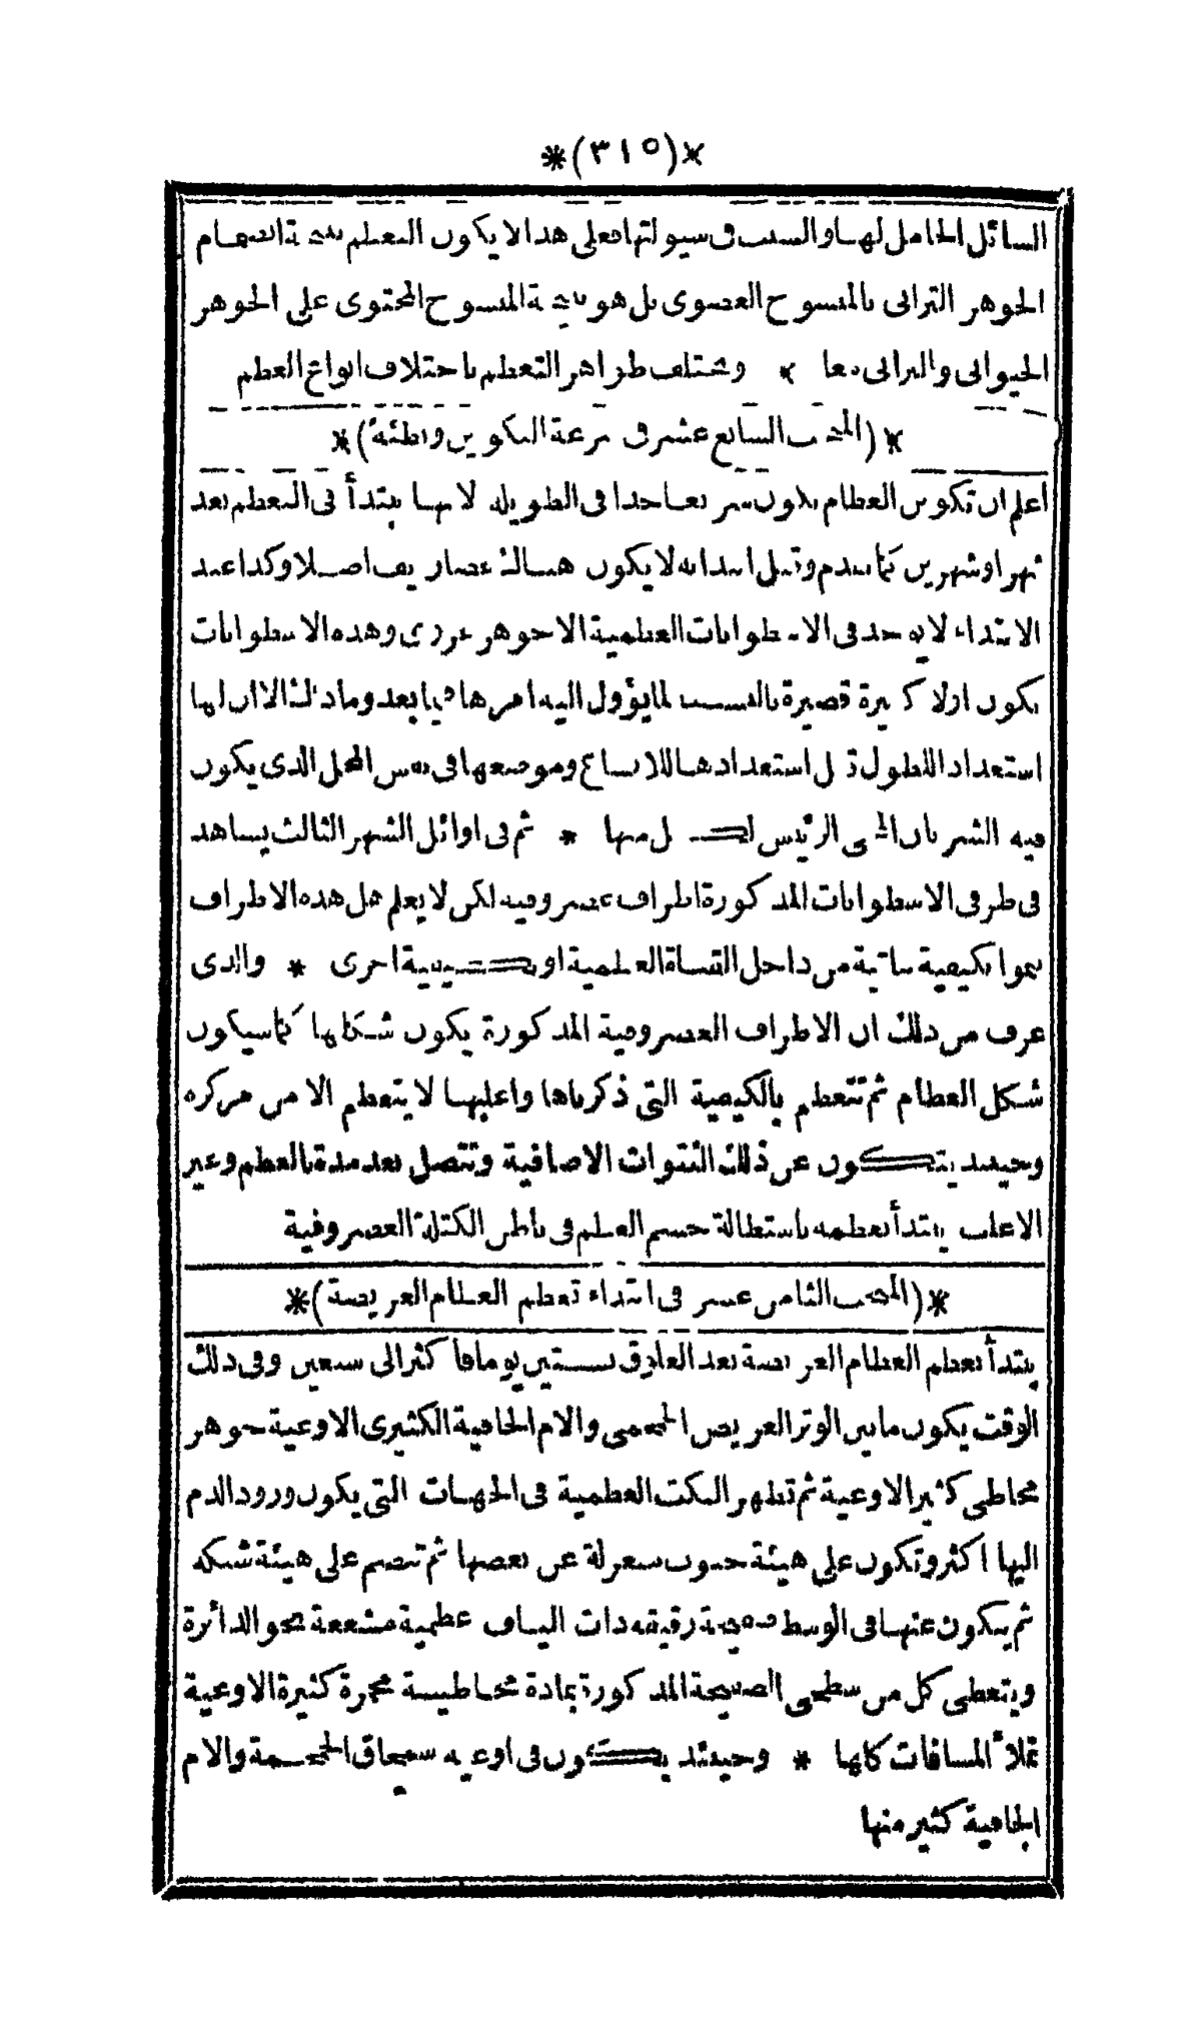 *(٣١٥)*
السائل الحامل لها والسبب فى سيولتها فعلى هذا لا يكون التعظم نتيجة انضمام
الجوهر الترابى بالمنسوج العضوى بل هو نتيجة المنسوج المحتوى على الجوهر
الحيوانى والترابى معا * وتختلف ظواهر التعظم باختلاف انواع العظم
*(المبحث السابع عشر فى سرعة التكوين وبطئه)*
اعلم ان تكوين العظام يكون سريعا جدا فى الطويلة لانها يبتدأ فى التعظم بعد
شهر او شهرين كما تقدم وقبل ابتدائه لا يكون هنالك غضاريف اصلا وكذا عند
الابتداء لا يوجد فى الاسطوانات العظمية الا جوهر غروى وهذه الاسطوانات
تكون اولا كبيرة قصيرة بالنسبة لما يؤول اليه امرها فيما بعد وما ذلك الا ان لها
استعداد اللطول قبل استعدادها للاتساع وموضعها فى نفس المحل الذى يكون
فيه الشريان الرئيس لكل منها * ثم فى اوائل الشهر الثالث يشاهد
فى طرفى الاسطوانات المذكورة اطراف غضروفية لكن لا يعلم هل هذه الاطراف
نموا بكيفية نباتية من داخل القناة العظمية او بكيفية اخرى * والذى
عرف من ذلك ان الاطراف الغضروفية المذكورة يكون شكلها كما سيكون
شكل العظام ثم تتعظم بالكيفية التى ذكرناها واغلبها لا يتعظم الا من مركزه
وحينئذ يتكون عن ذلك النتوات الاضافية وتتصل بعد مدة بالعظم وغير
الاغلب يبتدأ تعظمه باستطالة جسم العظم فى باطن الكتلة الغضروفية
*(المبحث الثامن عشر فى ابتداء تعظم العظام العريضة)*
يبتدأ تعظم العظام العريضة بعد العلوق بستين يوما فاكثر الى سبعين وفى ذلك
الوقت يكون ما بين الوتر العريض الجمجمى والام الجافية الكثيرى الاوعية جوهر
مخاطى كثير الاوعية ثم تظهر النكت العظمية فى الجهات التى يكون ورود الدم
اليها اكثر وتكون على هيئة حبوب منعزلة عن بعضها ثم تنضم على هيئة شبكة
ثم يتكون عنها فى الوسط صفيحة رقيقة ذات الياف عظمية مشععة نحو الدائرة
ويتغطى كل من سطحى الصفيحة المذكورة بمادة مخاطية محمرة كثيرة الاوعية
تملأ المسافات كلها * وحينئذ يكون فى اوعية سمحاق الجمجمة والام
الجافية كثير منها